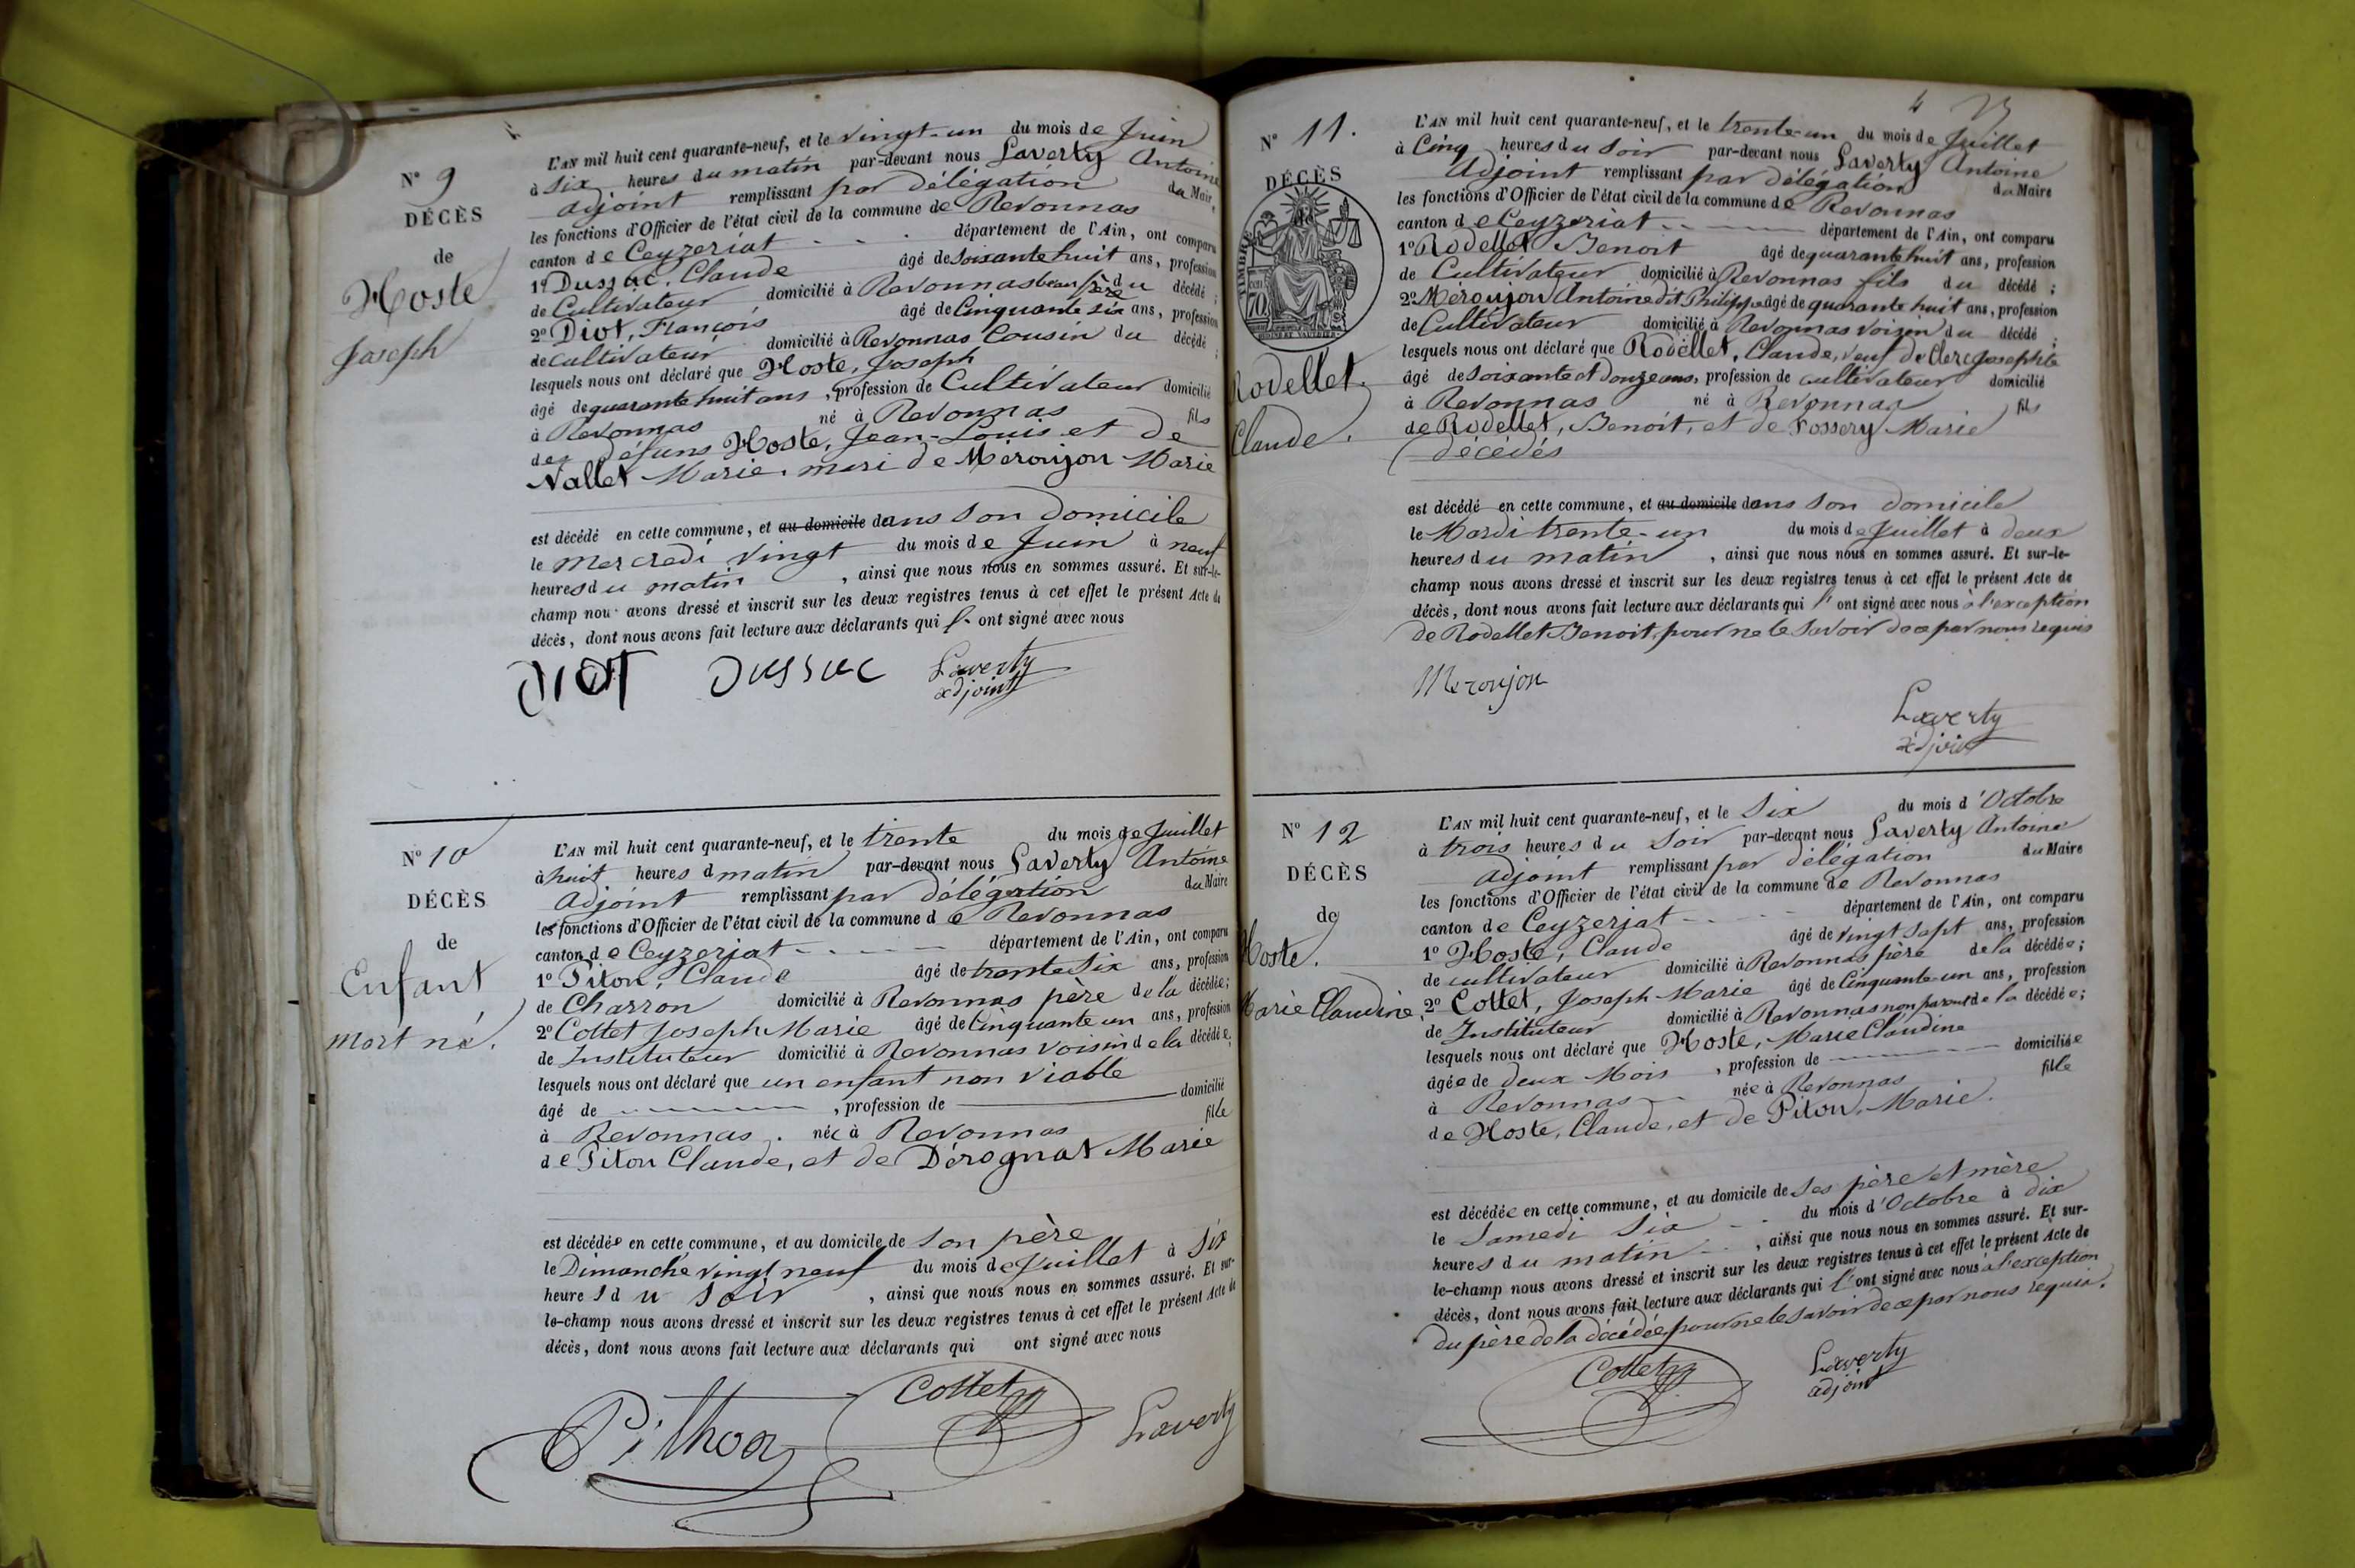 N° 9
DÉCÈS
de
Hoste
Joseph
L'AN mil huit cent quarante-neuf, et le vingt-un du mois de Juin
à six heures du matin par-devant nous Laverty Antoine
adjoint remplissant par délégation du Maire
les fonctions d'Officier de l'état civil de la commune de Revonnas
canton de Ceyzeriat département de l'Ain, ont comparu
1° Dussuc, Claude âgé de soixante huit ans, profession
de Cultivateur domicilié à Revonnas beau père du décédé ;
2° Diot, François âgé de Cinquante six ans, profession
de cultivateur domicilié à Revonnas Cousin du décédé ;
lesquels nous ont déclaré que Hoste, Joseph
âgé de quarante huit ans, profession de Cultivateur domicilié
à Revonnas né à Revonnas fils
des défuns Hoste, Jean-Louis et de
Nallet Marie, mari de Meroujon Marie
est décédé en cette commune, et au domicile dans son domicile
le mercredi vingt du mois de Juin à neuf
heures du matin, ainsi que nous nous en sommes assuré. Et sur-le-
champ nous avons dressé et inscrit sur les deux registres tenus à cet effet le présent Acte de
décès, dont nous avons fait lecture aux déclarants qui l' ont signé avec nous
DIOT DUSSUC Laverty
adjoint
N° 10
DÉCÈS
de
Enfant
mort né.
L'AN mil huit cent quarante-neuf, et le trente du mois de Juillet
à huit heures d matin par-devant nous Laverty Antoine
adjoint remplissant par délégation du Maire
les fonctions d'Officier de l'état civil de la commune de Revonnas
canton de Ceyzeriat département de l'Ain, ont comparu
1° Piton, Claude âgé de trente six ans, profession
de Charron domicilié à Revonnas père de la décédée ;
2° Cottet Joseph Marie âgé de Cinquante un ans, profession
de Instituteur domicilié à Revonnas voisin de la décédée ;
lesquels nous ont déclaré que un enfant non viable
âgé de , profession de domicilié
à Revonnas. née à Revonnas fille
de Piton Claude, et de Dérognat Marie
est décédée en cette commune, et au domicile de son père
le Dimanche vingt neuf du mois de Juillet à six
heures du soir, ainsi que nous nous en sommes assuré. Et sur-
le-champ nous avons dressé et inscrit sur les deux registres tenus à cet effet le présent Acte de
décès, dont nous avons fait lecture aux déclarants qui ont signé avec nous
Pithon Cottet Laverty
N° 11.
DÉCÈS
de
TIMBRE
70
Rodellet.
Claude.
L'AN mil huit cent quarante-neuf, et le trente-un du mois de Juillet
à Cinq heures du soir par-devant nous Laverty Antoine
Adjoint remplissant par délégation du Maire
les fonctions d'Officier de l'état civil de la commune de Revonnas
canton de Ceyzeriat département de l'Ain, ont comparu
1° Rodellet Benoit âgé de quarante huit ans, profession
de Cultivateur domicilié à Revonnas fils du décédé ;
2° Méroujon Antoine dit Philippe âgé de quarante huit ans, profession
de Cultivateur domicilié à Revonnas voisin du décédé ;
lesquels nous ont déclaré que Rodellet, Claude, veuf de Clerc Josephte
âgé de soixante et douze ans, profession de cultivateur domicilié
à Revonnas né à Revonnas fils
de Rodellet, Benoit, et de Fossery Marie
décédés
est décédé en cette commune, et au domicile dans son domicile
le Mardi trente-un du mois de Juillet à deux
heures du matin, ainsi que nous nous en sommes assuré. Et sur-le-
champ nous avons dressé et inscrit sur les deux registres tenus à cet effet le présent Acte de
décès, dont nous avons fait lecture aux déclarants qui l' ont signé avec nous à l'exception
de Rodellet Benoit, pour ne le savoir de ce par nous requis
Meroujon
Laverty
adjoint
N° 12
DÉCÈS
de
Hoste.
Marie Claudine.
L'AN mil huit cent quarante-neuf, et le Six du mois d'Octobre
à trois heures du soir par-devant nous Laverty Antoine
adjoint remplissant par délégation du Maire
les fonctions d'Officier de l'état civil de la commune de Revonnas
canton de Ceyzeriat département de l'Ain, ont comparu
1° Hoste, Claude âgé de vingt sept ans, profession
de cultivateur domicilié à Revonnas père de la décédée ;
2° Cottet, Joseph Marie âgé de Cinquante-un ans, profession
de Instituteur domicilié à Revonnas non parent de la décédée ;
lesquels nous ont déclaré que Hoste, Marie Claudine
âgée de deux Mois, profession de domiciliée
à Revonnas née à Revonnas fille
de Hoste, Claude, et de Piton, Marie.
est décédée en cette commune, et au domicile de ses père et mère
le Samedi Six du mois d'Octobre à dix
heures du matin, ainsi que nous nous en sommes assuré. Et sur-
le-champ nous avons dressé et inscrit sur les deux registres tenus à cet effet le présent Acte de
décès, dont nous avons fait lecture aux déclarants qui l' ont signé avec nous à l'exception
du père de la décédée pour ne le savoir de ce par nous requis.
Cottet Laverty
adjoint